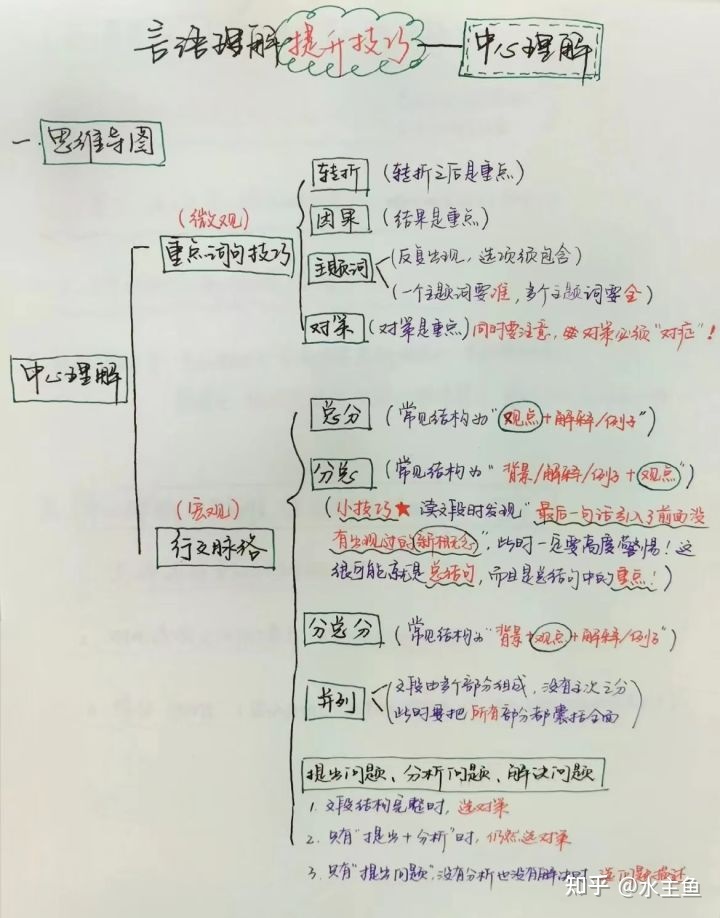 言语理解提升技巧 — 中心理解
一. 思维导图
转折 (转折之后是重点)
(微观)
因果 (结果是重点)
重点词句技巧
主题词 (反复出现, 选项须包含)
(一个主题词要准, 多个主题词要全)
对策 (对策是重点) 同时要注意, 对策必须“对症”!
中心理解
总分 (常见结构为“观点+解释/例子”)
分总 (常见结构为“背景/解释/例子+观点”)
(宏观)
(小技巧★ 读文段时发现“最后一句话引入了前面没
行文脉络
有出现过的新概念”, 此时一定要高度警惕! 这
很可能就是总结句, 而且是总结句中的重点!)
分总分 (常见结构为“背景+观点+解释/例子”)
并列 (文段由多个部分组成, 没有主次之分
此时要把所有部分都囊括全面)
提出问题、分析问题、解决问题
1. 文段结构完整时, 选对策
2. 只有“提出+分析”时, 仍然选对策
3. 只有“提出问题”, 没有分析也没有解决时, 选问题描述
知乎 @水王鱼